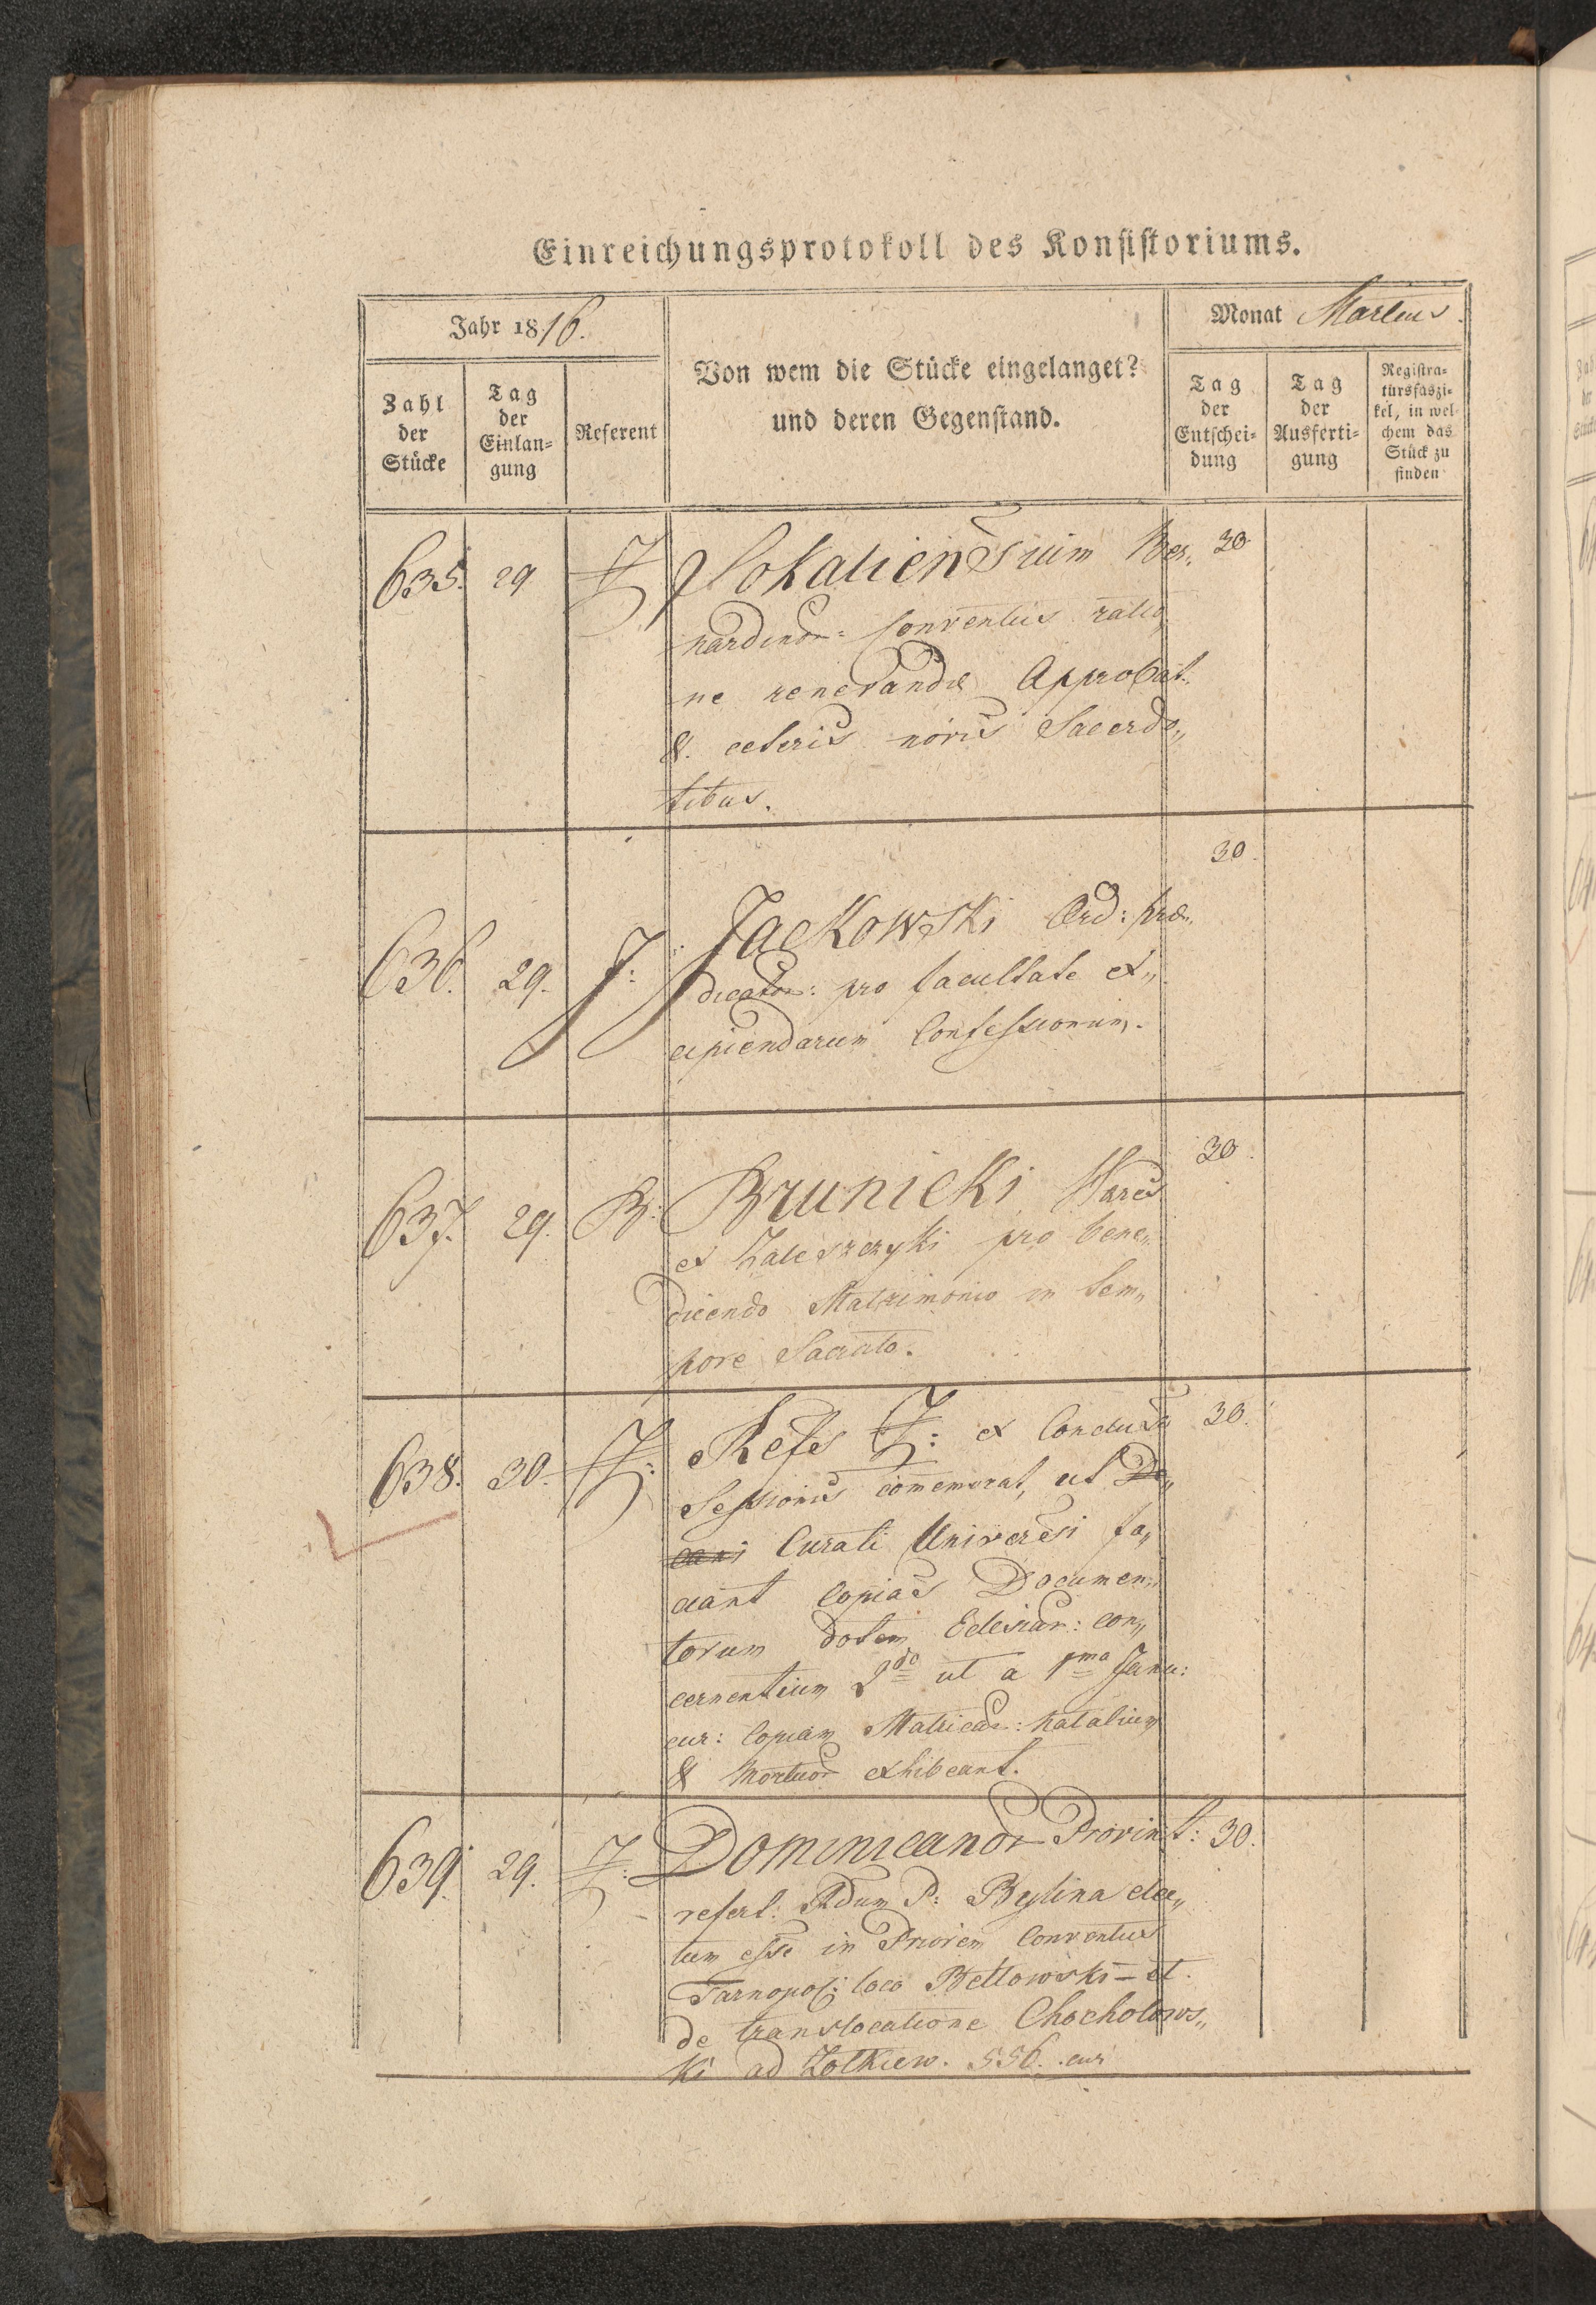 Einreichungsprotokoll des Konsistoriums.
Jahr 1816.
Von wem die Stücke eingelanget?
und deren Gegenstand.
Monat Martius.
Zahl
der
Stücke
Tag
der
Einlan=
gung
Referent
Tag
der
Entschei=
dung
Tag
der
Ausferti=
gung
Registra=
tursfaszi=
kel, in wel
chem das
Stück zu
finden
635. 29 Sokaliensium Ber„ 30
nardinor: Conventus ratio
ne renovandæ Approbat.
&. ceteris novis Sacerdo„
tibus.
30.
636. 29. J: Jackowski Ord: præ„
dicator: pro facultate ex„
cipiendarum Confessionum.
30.
637. 29. B: Brunicki Hæres
ex Zaleszczyki pro bene„
dicendo Matrimonio in tem„
pore Sacrato.
638. 30. Refs ex Conclusu 30.
Sessionis commemorat, ut De„
cani Curati Universi fa„
ciant Copias Documen„
torum dotem Eclesiar: con„
cernentium 2do ut a 1ma Janu:
cur: Copiam Matricar: Natalium
& Mortuor exhibeant.
639. 29. Dominicanor Provint: 30.
refert: Rdum P: Bylina elec„
tum esse in Priorem Conventus
Tarnopol: loco Bellowski – et
de translocatione Chocholows„
ki ad Zolkiew. 556. cur: